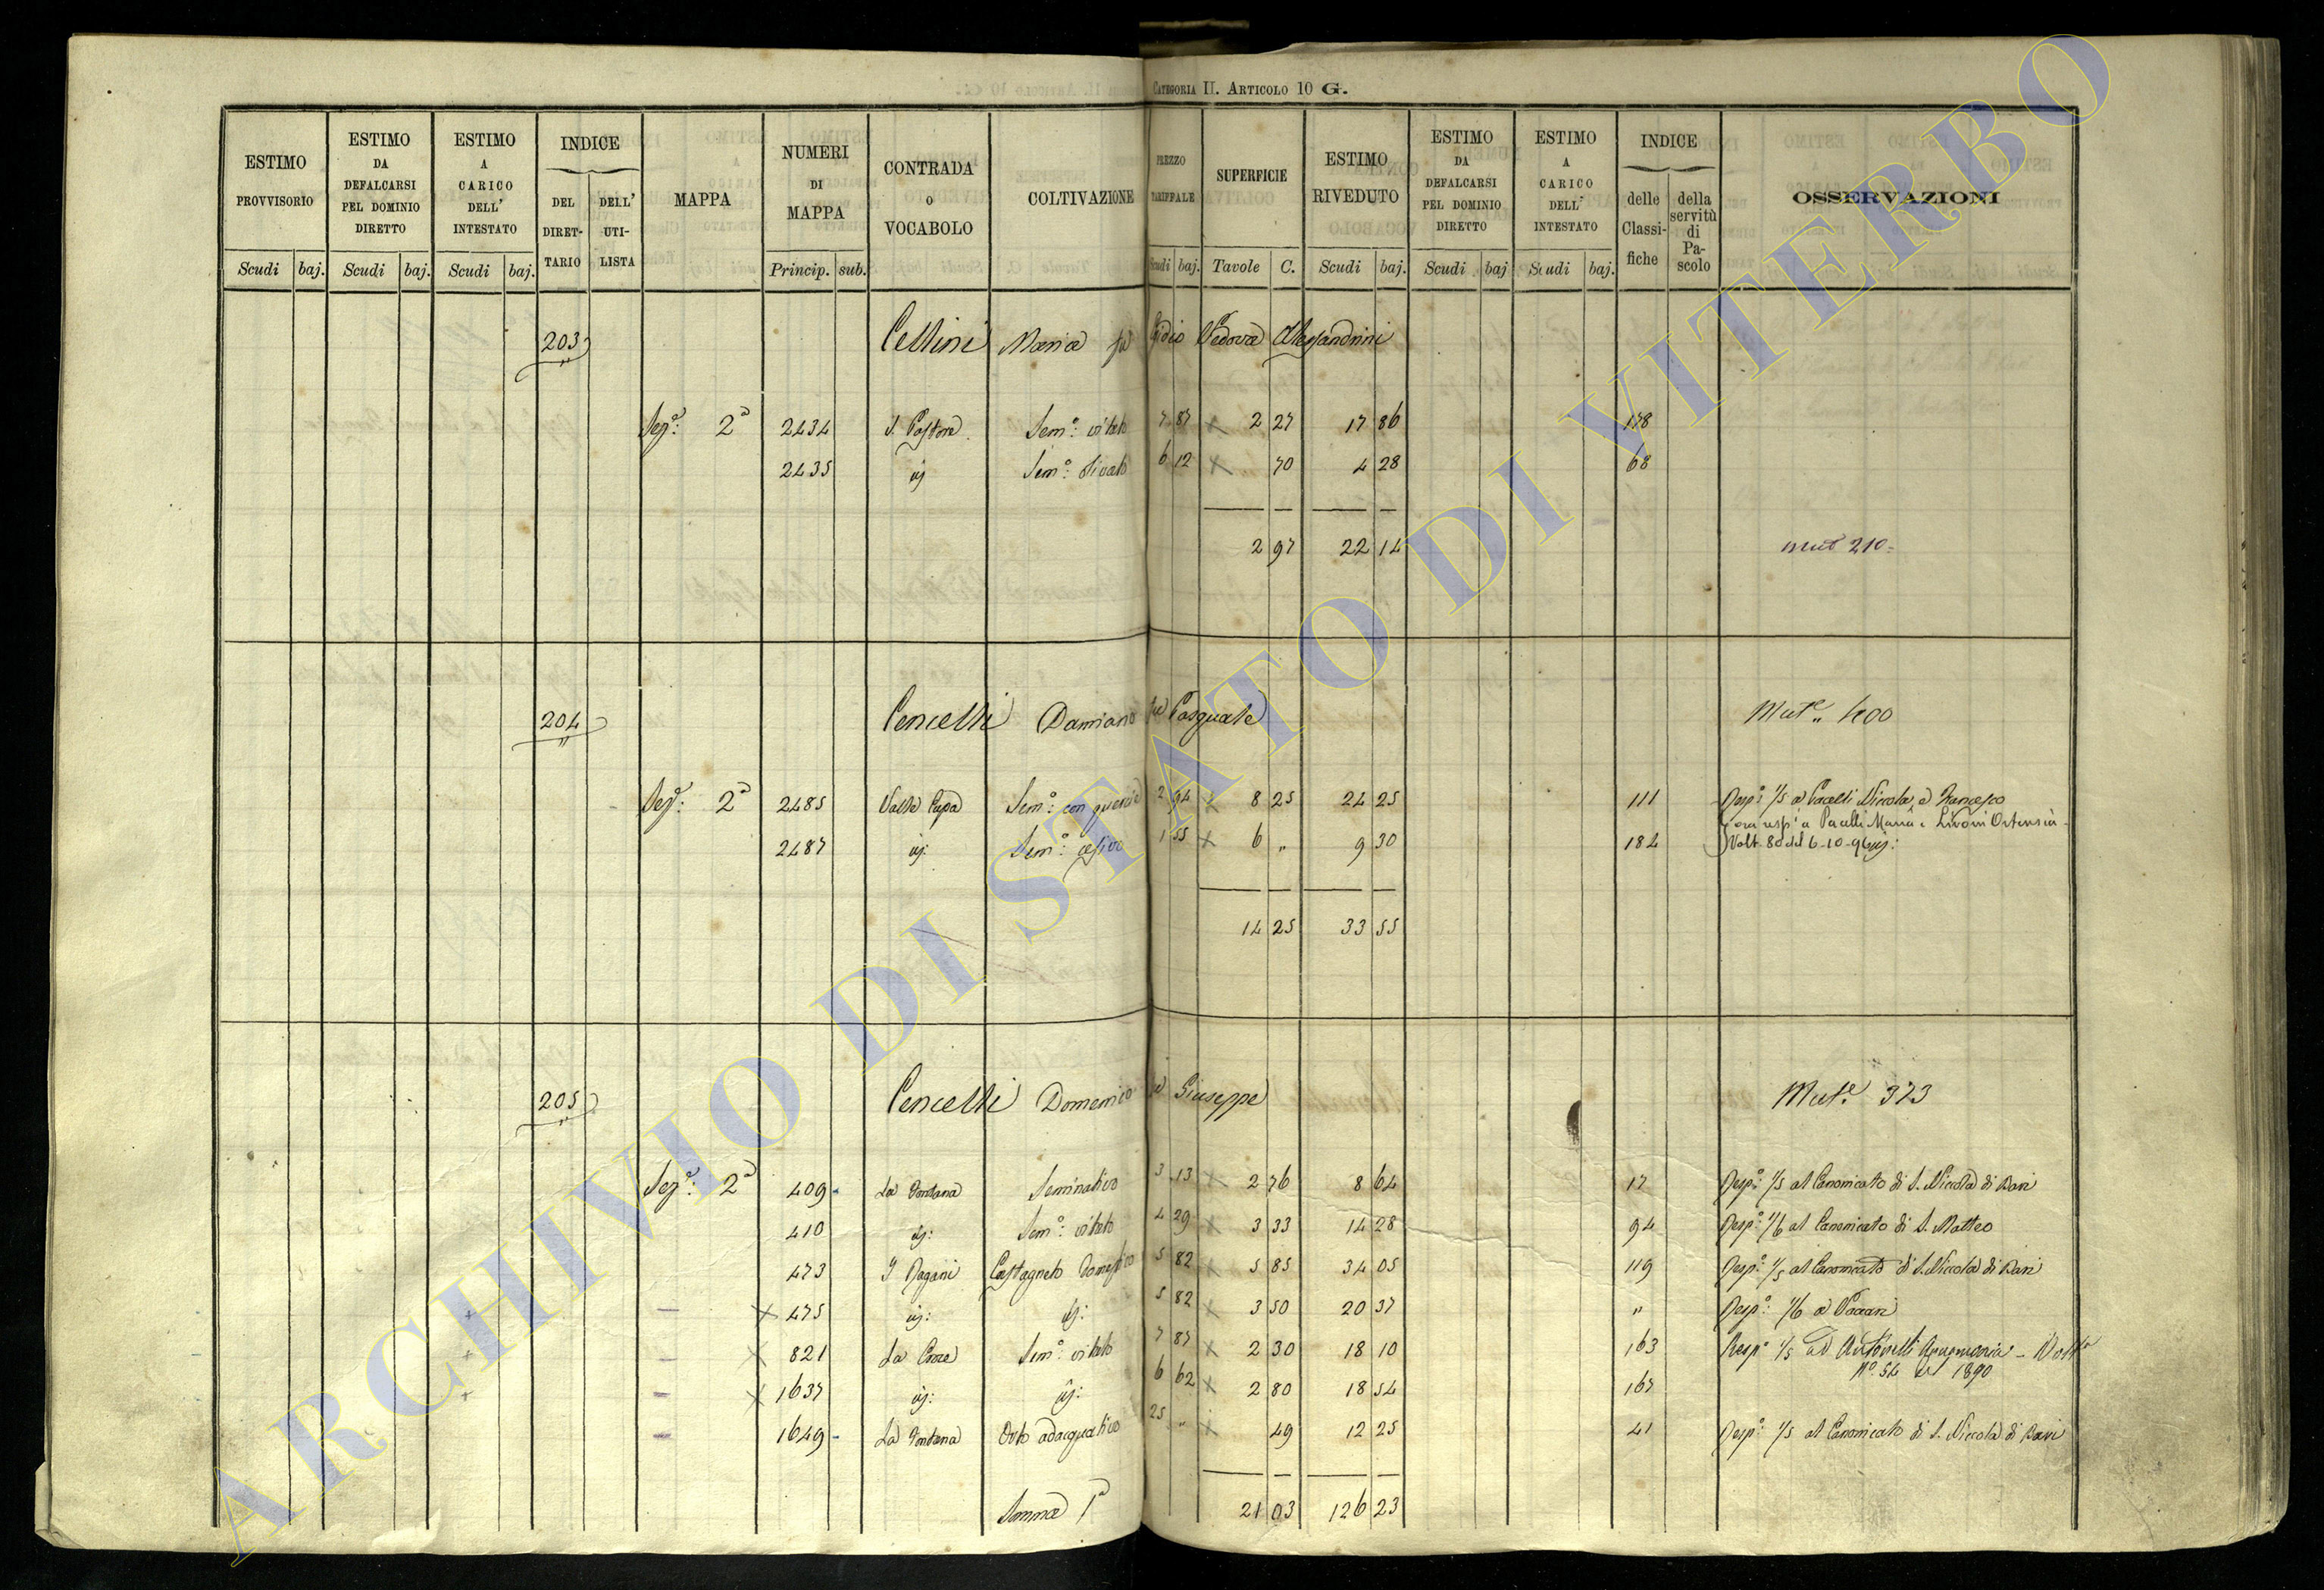 CATEGORIA II. ARTICOLO 10 G.
ESTIMO PROVVISORIO Scudi baj.
ESTIMO DA DEFALCARSI PEL DOMINIO DIRETTO Scudi baj.
ESTIMO A CARICO DELL' INTESTATO Scudi baj.
INDICE DEL DIRET-TARIO DELL' UTI-LISTA
MAPPA
NUMERI DI MAPPA Princip. sub.
CONTRADA o VOCABOLO
COLTIVAZIONE
PREZZO TARIFFALE Scudi baj.
SUPERFICIE Tavole C.
ESTIMO RIVEDUTO Scudi baj.
ESTIMO DA DEFALCARSI PEL DOMINIO DIRETTO Scudi baj
ESTIMO A CARICO DELL' INTESTATO Scudi baj.
INDICE delle Classi-fiche della servitù di Pa-scolo
OSSERVAZIONI
203 Cellini Maria fu Egidio Vedova Alessandrini
Sez.e: 2a 2434 S. Pastore Sem.o: vitato 7 87 x 2 27 17 86 178
2435 iij Sem.o: olivato 6 12 x 70 4 28 68
2 97 22 14 Mut.e 210=
204 Cencelli Damiano fu Pasquale Mut.e 400
Sez.e: 2a 2485 Valle Cupa Sem.o: con quercie 2 94 x 8 25 24 25 111 Resp.o: 1/5 a Pacelli Niccola, e Francesco
ora resp. a Pacelli Maria e Livoni Ortensia
2487 iij: Sem.o: cesivo 1 55 x 6 " 9 30 184 Volt. 80 del 6-10-96 iij:
14 25 33 55
205 Cencelli Domenico fu Giuseppe Mut.e 373
Sez.e: 2a 409 La Fontana Seminativo 3 13 x 2 76 8 64 17 Resp.o: 1/5 al Canonicato di S. Niccola di Bari
410 iij: Sem.o: vitato 4 29 x 3 33 14 28 94 Resp.o: 1/6 al Canonicato di S. Matteo
473 I Pagani Castagneto Domestico 5 82 x 5 85 34 05 119 Resp.o: 1/5 al Canonicato di S. Niccola di Bari
x 475 iij: iij: 5 82 x 3 50 20 37 " Resp.o: 1/6 a Vaccari
x 821 La Croce Sem.o: vitato 7 87 x 2 30 18 10 163 Resp.o 1/5 ad Antonelli - Volt.a
No. 54 del 1890
x 1637 iij: iij: 6 62 x 2 80 18 54 167
1649 La Fontana Orto adacquativo 25 " x 49 12 25 41 Resp.o: 1/5 al Canonicato di S. Niccola di Bari
Somma 1a 21 03 126 23
ARCHIVIO DI STATO DI VITERBO